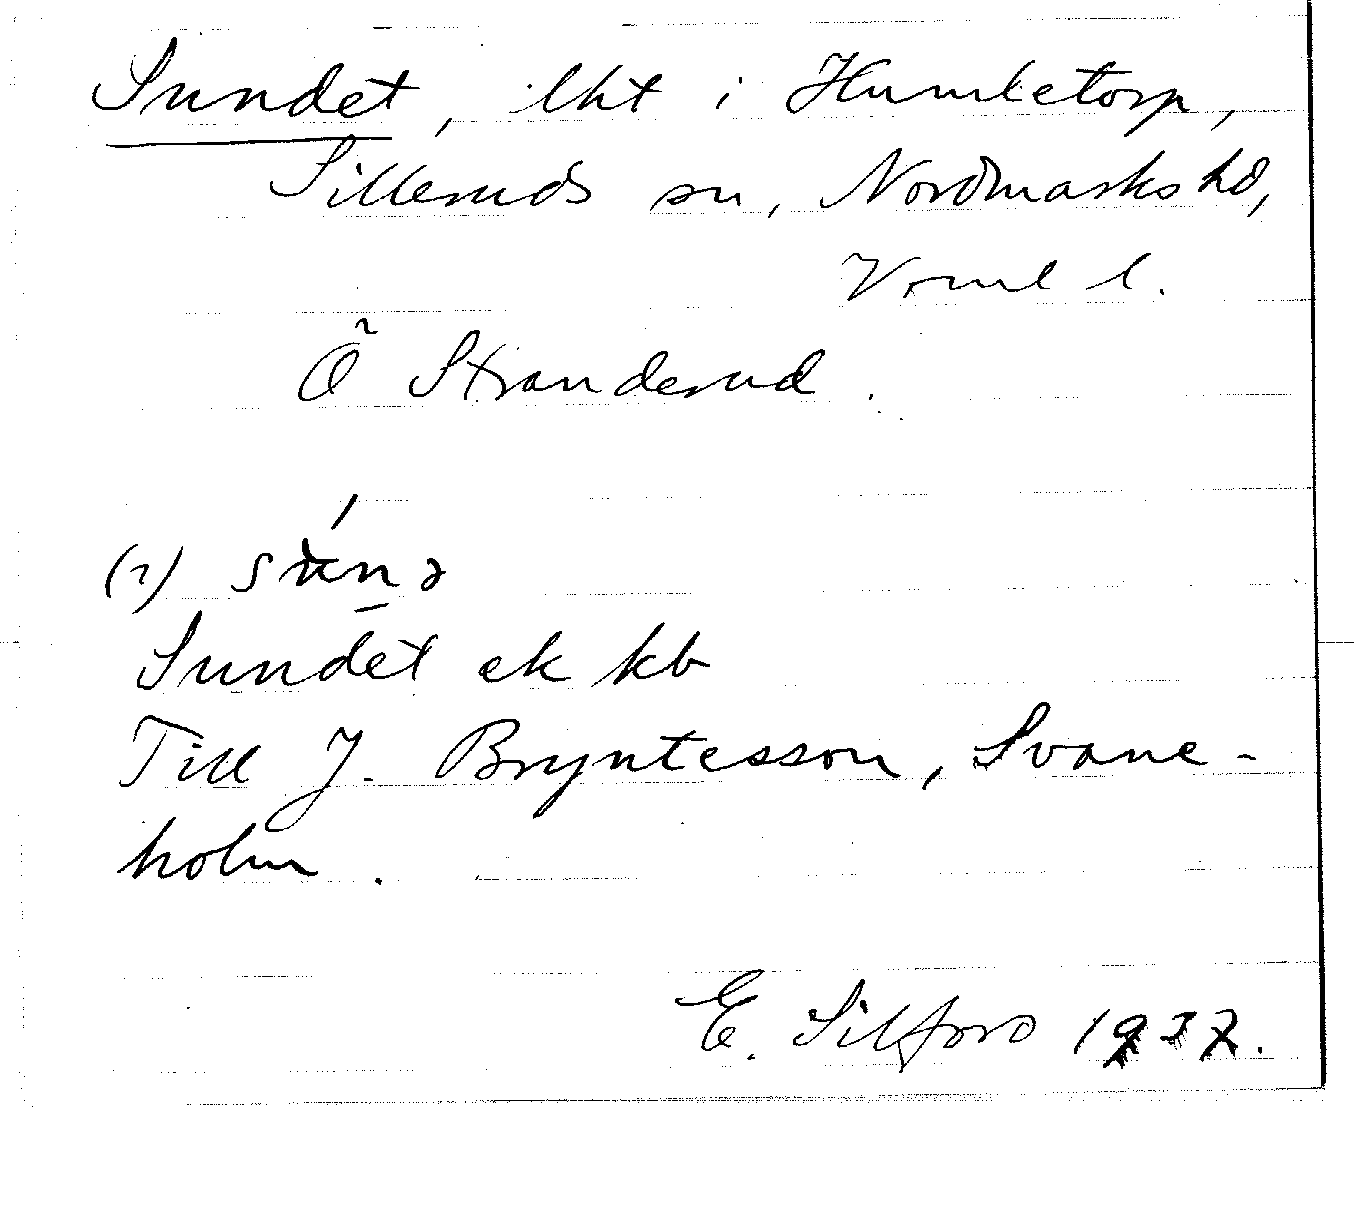 Sundet, lht i Humletorp,
Silleruds sn, Nordmarks hd,
Vrml l.
Õ Stranderud.
(i)
Sundet ek kb
Till J. Bryntesson, Svane-
holm.
E. Silfors 1937.